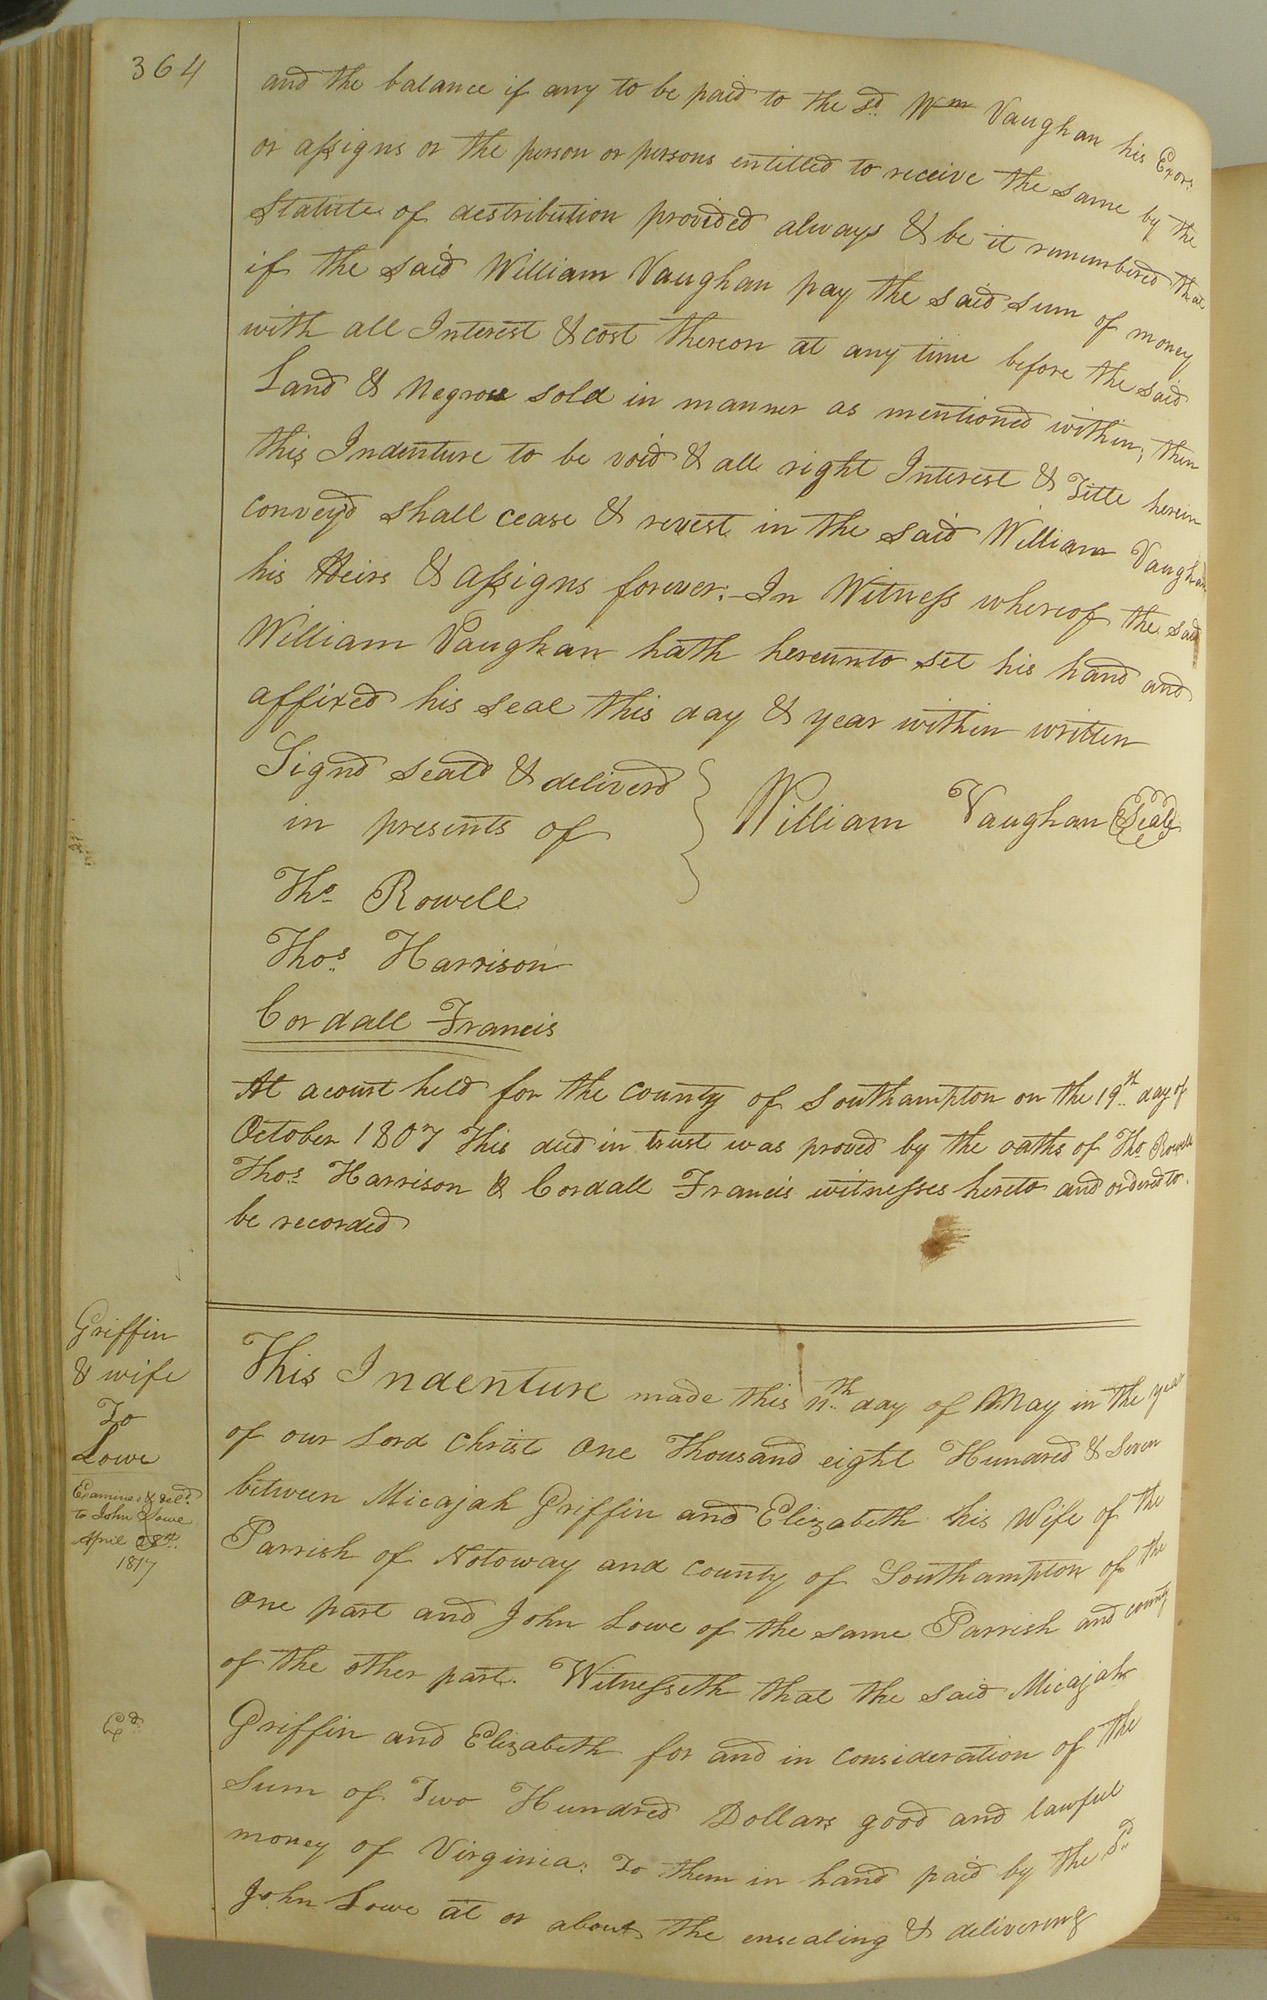 364
and the balance if any to be paid to the sd. Wm Vaughan his Exors.
or assigns or the person or persons entitled to receive the same by the
Statute of destribution provided always & be it remembered that
if the said William Vaughan pay the said sum of money
with all Interest & cost thereon at any time before the said
Land & Negroes sold in manner as mentioned within, then
this Indenture to be void & all right Interest & Title herein
convey'd shall cease & revest in the said William Vaughan
his Heirs & assigns forever. In Witness whereof the said
William Vaughan hath hereunto set his hand and
affixed his seal this day & year within written
Signd seald & deliverd
in presents of
William Vaughan (Seal)
Tho Rowell
Thos. Harrison
Cordall Francis
At a court held for the county of Southampton on the 19th day of
October 1807 This deed in trust was proved by the oaths of Tho Rowell
Thos. Harrison & Cordall Francis witnesses hereto and ordered to
be recorded
Griffin
& wife
To
Lowe
Examined & deld.
to John Lowe
April 28th.
1817
Ed.
This Indenture made this 11th day of May in the year
of our Lord Christ One Thousand eight Hundred & Seven
between Micajah Griffin and Elizabeth his Wife of the
Parrish of Notoway and county of Southampton of the
one part and John Lowe of the same Parrish and county
of the other part. Witnesseth that the said Micajah
Griffin and Elizabeth for and in consideration of the
Sum of Two Hundred Dollars good and lawful
money of Virginia: To them in hand paid by the sd
John Lowe at or about the ensealing & delivering